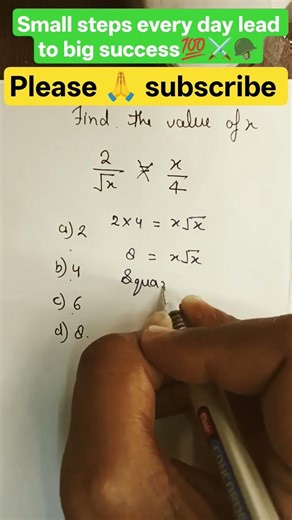 Small steps every day lead
to big success💯⚔️🪖
Please 🙏 subscribe
Find the value of x
2/√x = x/4
a) 2 2 × 4 = x√x
b) 4 8 = x√x
Squa
c) 6
d) 8.